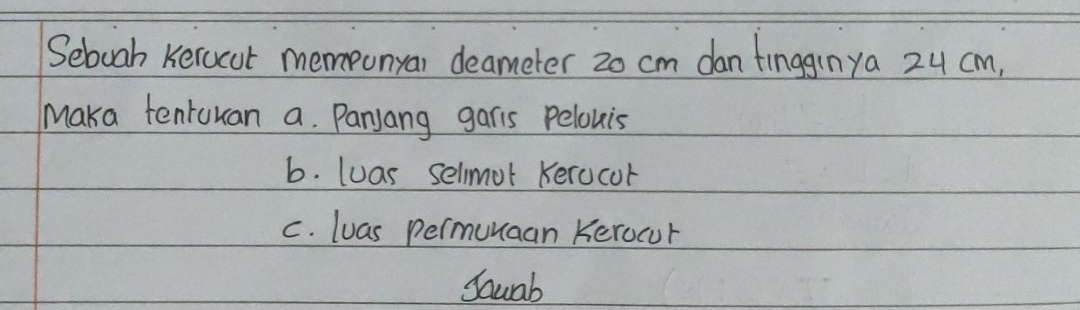 Sebuah Kerucut mempunyai deameter 20 cm dan tingginya 24 cm,
Maka tentukan a. Panjang garis Pelukis
b. luas selimut Kerucut
c. luas Permukaan Kerucut
Jawab